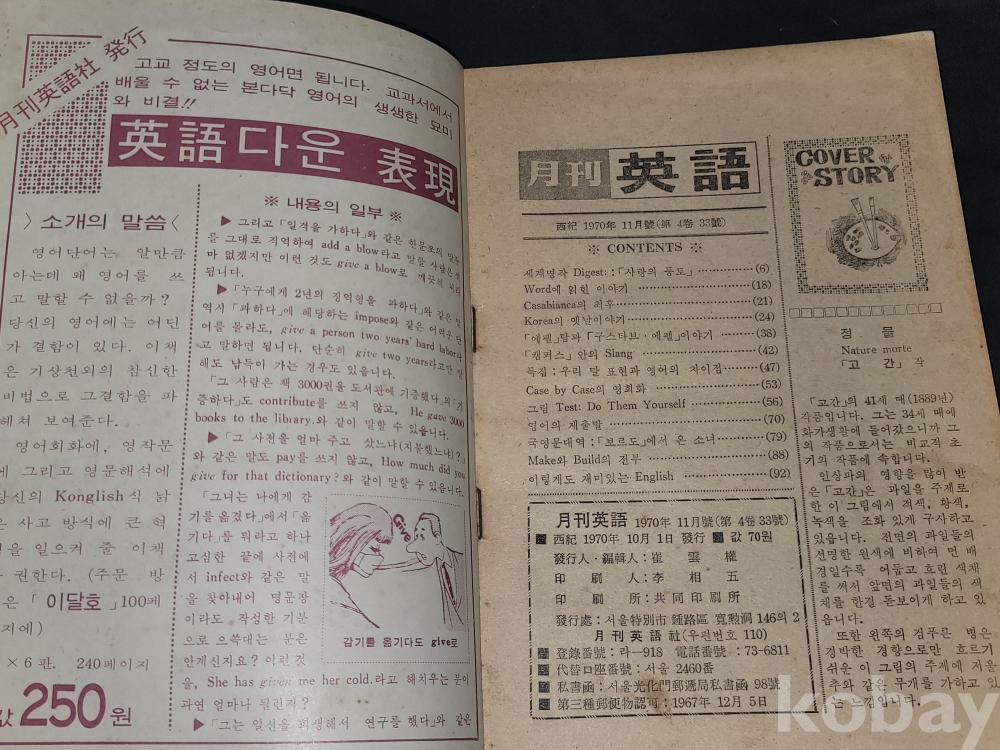 月刊英語社 発行
고교 정도의 영어면 됩니다. 교과서에서
배울 수 없는 본다닥 영어의 생생한 묘미
와 비결!!
英語다운 表現
〉소개의 말씀〈
영어단어는 알만큼
아는데 왜 영어를 쓰
고 말할 수 없을까?
당신의 영어에는 어딘
가 결함이 있다. 이책
은 기상천외의 참신한
비법으로 그결함을 파
헤쳐 보여준다.
영어회화에, 영작문
에 그리고 영문해석에
당신의 Konglish식 낡
은 사고 방식에 큰 혁
을 일으켜 줄 이책
권한다. (주문 방
은 「이달호」100페
지에)
×6판. 240페이지
값 250원
※ 내용의 일부 ※
▶ 그리고 「일격을 가하다」와 같은 한문조의 말투
를 그대로 직역하여 add a blow라고 말할 사람은
마 없겠지만 이런 것도 give a blow로 깨끗히 처리
됩니다.
▶ 「누구에게 2년의 징역형을 과하다」와 같은 말
역시 「과하다」에 해당하는 impose와 같은 어려운 단
어를 몰라도, give a person two years' hard labor라
고 말하면 됩니다. 단순히 give two years라고만 말
해도 납득이 가는 경우도 있읍니다.
「그 사람은 책 3000권을 도서관에 기증했다」의 「기
증하다」도 contribute를 쓰지 않고, He gave 3000
books to the library.와 같이 말할 수 있읍니다.
▶ 「그 사전을 얼마 주고 샀느냐(지불했느냐)?」
와 같은 말도 pay를 쓰지 않고, How much did you
give for that dictionary?와 같이 말할 수 있읍니다.
「그녀는 나에게 감
기를 옮겼다」에서 「옮
기다」를 뭐라고 하나
고심한 끝에 사전에
서 infect와 같은 말
을 찾아내어 명문장
이라도 작성한 기분
으로 으쓱대는 분은
안계신지요? 이런 것
을, She has given me her cold.라고 해치우는 분이
과연 얼마나 될런지?
▶ 「그는 일신을 희생해서 연구를 했다」와 같은
Give
감기를 옮기다도 give로
月刊 英語
西紀 1970年 11月號(第 4卷 33號)
※ CONTENTS ※
세계명작 Digest: :「사랑의 풍도」 (6)
Word에 얽힌 이야기 (18)
Casabianca의 최후 (21)
Korea의 옛날이야기 (24)
「에펠」탑과 「구스타브·에펠」이야기 (38)
「캠퍼스」안의 Slang (42)
특집: 우리 말 표현과 영어의 차이점 (47)
Case by Case의 영회화 (53)
그림 Test: Do Them Yourself (56)
영어의 제출발 (70)
국영문대역:「보르도」에서 온 소녀 (79)
Make와 Build의 전부 (88)
이렇게도 재미있는 English (92)
月刊英語 1970年 11月號(第 4卷 33號)
西紀 1970年 10月 1日 發行 값 70원
發行人·編輯人: 崔 雲 權
印 刷 人: 李 相 五
印 刷 所: 共同印刷所
發行處: 서울特別市 鍾路區 寬勳洞 146의 2
月刊英語社(우편번호 110)
登錄番號: 라—918 電話番號: 73-6811
代替口座番號: 서울 2460番
私書函: 서울光化門郵遞局私書函 98號
第三種郵便物認可: 1967年 12月 5日
COVER
STORY
정물
Nature morte
「고 간」 작
「고간」의 41세 때(1889년)
작품입니다. 그는 34세 때에
화가생활에 들어갔으니까 그
의 작품으로서는 비교적 초
기의 작품에 속합니다.
인상파의 영향을 많이 받
은 「고간」은 과일을 주제로
한 이 그림에서 적색, 황색,
녹색을 조화 있게 구사하고
있읍니다. 전면의 과일들의
선명한 원색에 비하여 먼 배
경일수록 어둡고 흐린 색채
를 써서 앞면의 과일들의 색
채를 한결 돋보이게 하고 있
읍니다.
또한 왼쪽의 검푸른 병은
경박한 경향으로만 흐르기
쉬운 이 그림의 주제에 저울
추와 같은 무게를 가하고 있
는 느낌입니다.
kobay